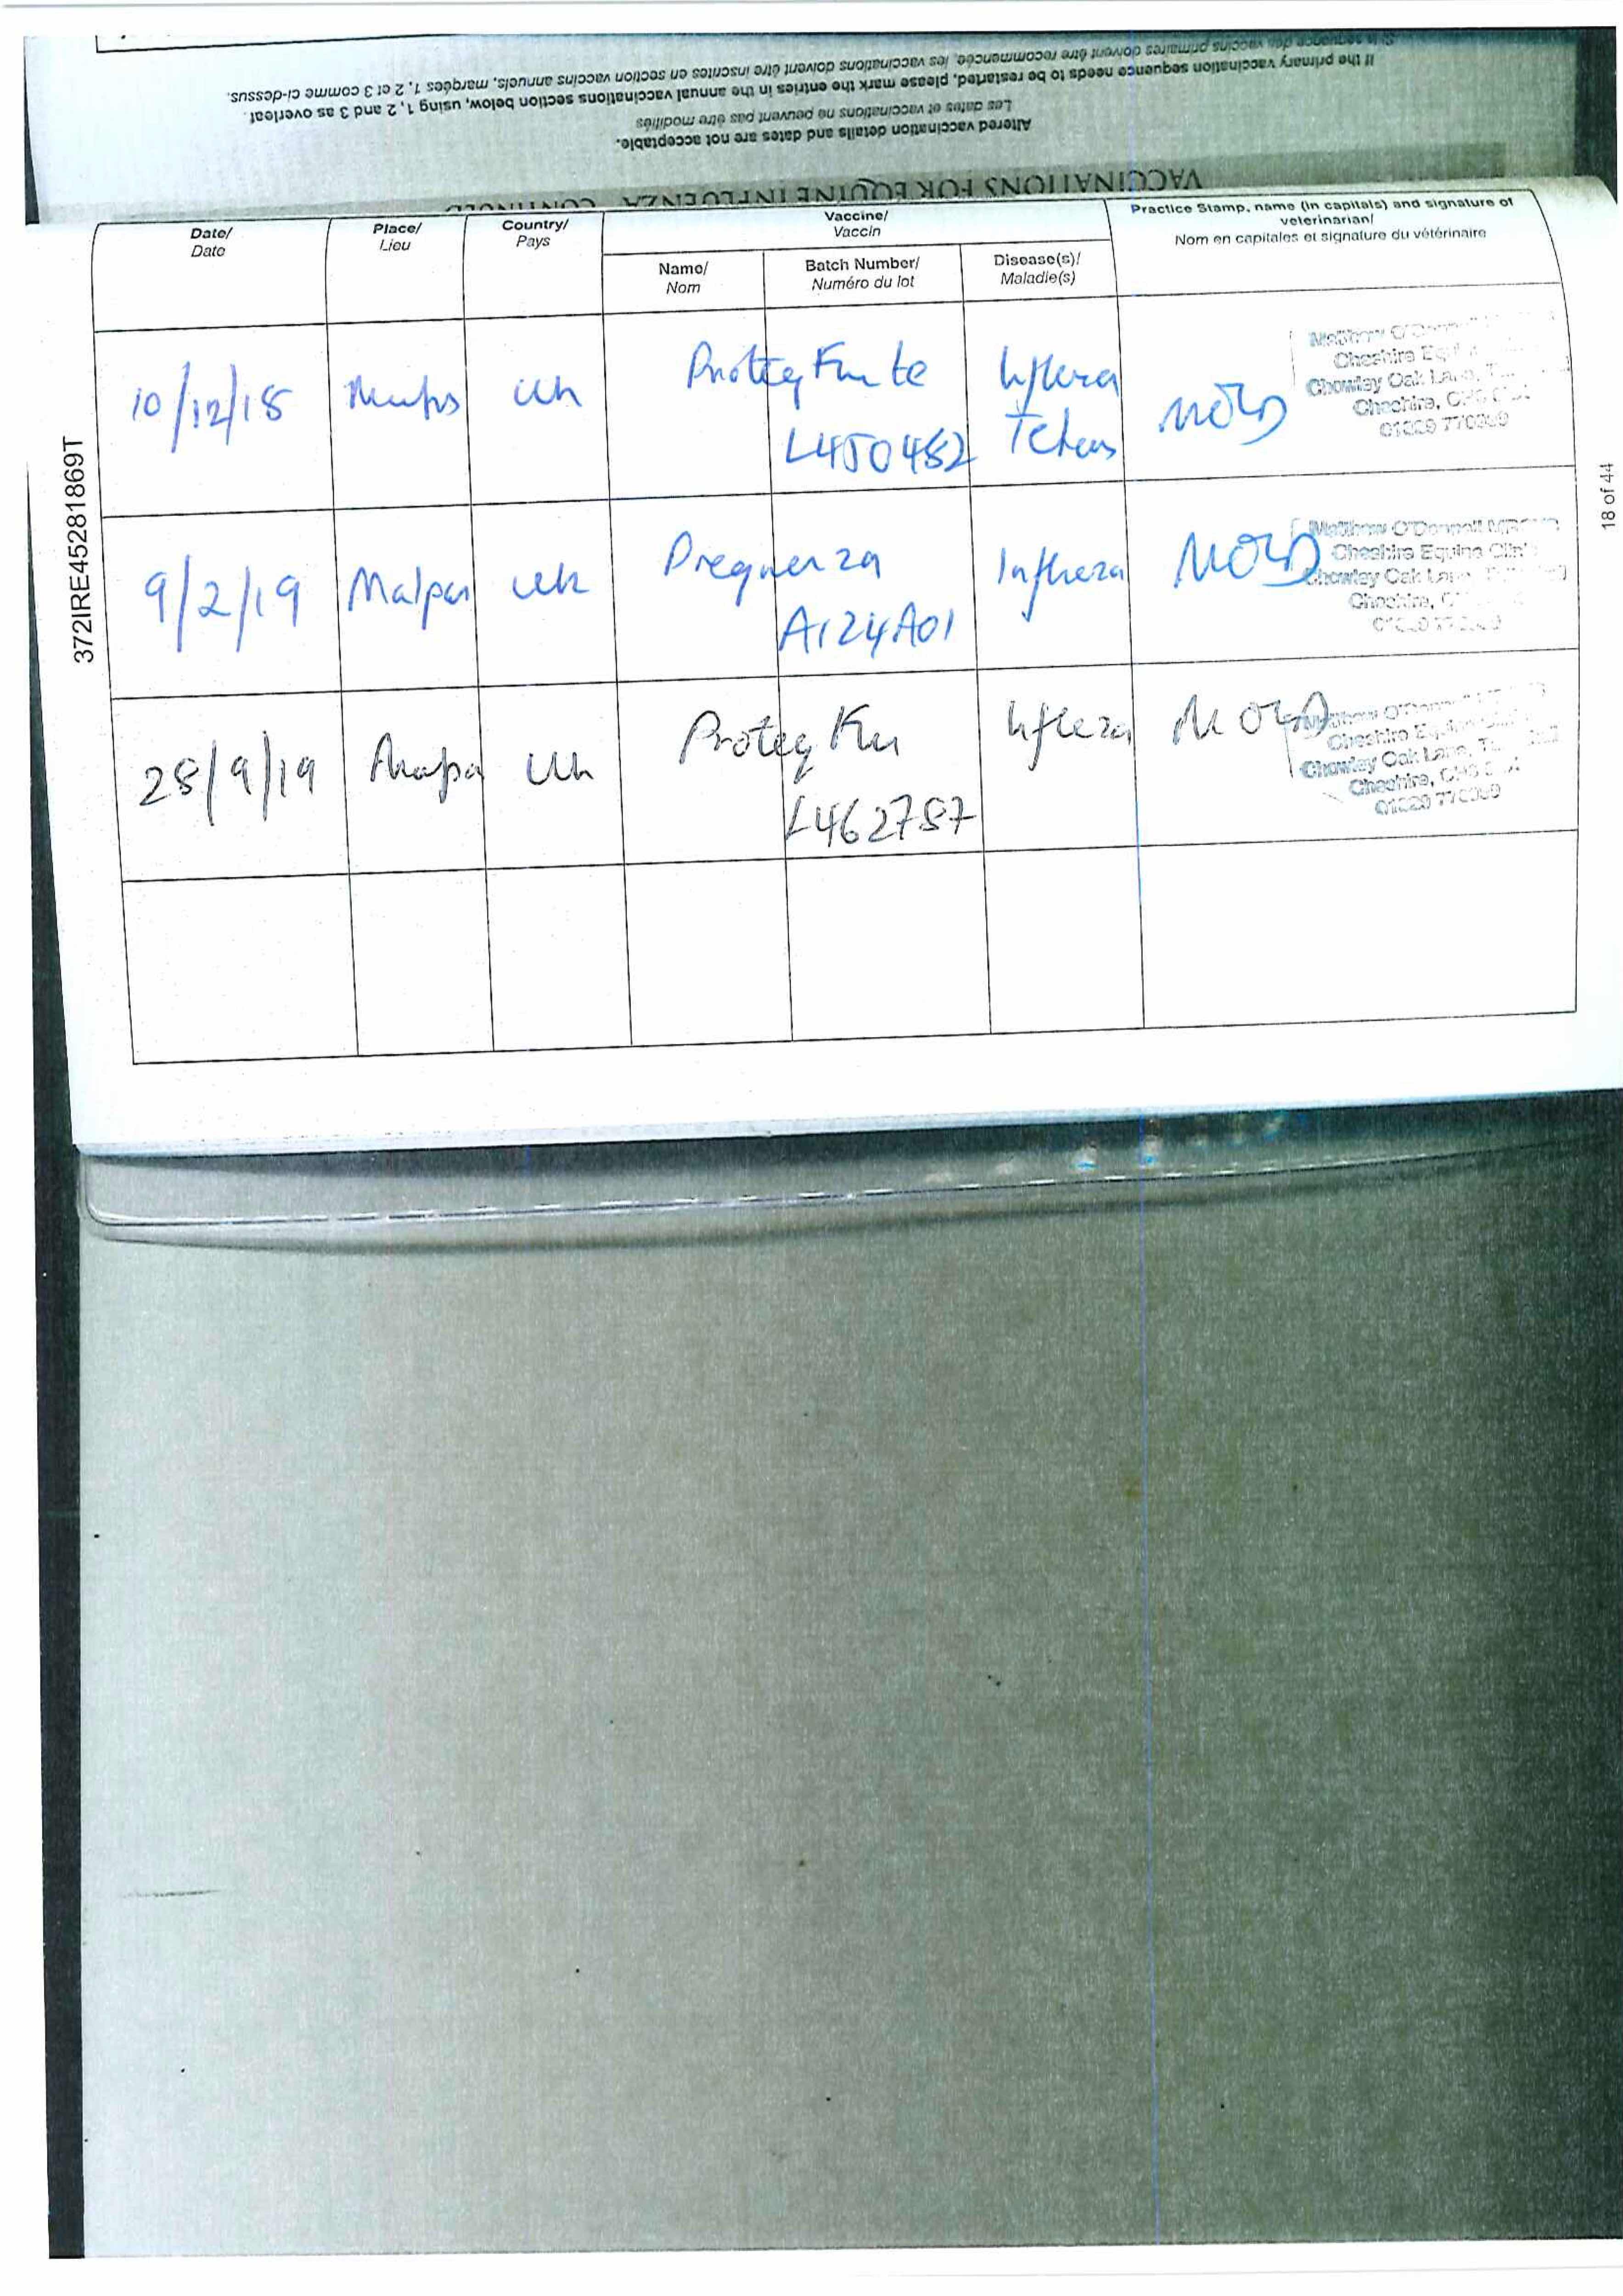 Si la séquence des vaccins primaires doivent être recommencée, les vaccinations doivent être inscrites en section vaccins annuels, marquées 1, 2 et 3 comme ci-dessus.
If the primary vaccination sequence needs to be restarted, please mark the entries in the annual vaccinations section below, using 1, 2 and 3 as overleaf.
Les dates et vaccinations ne peuvent pas être modifiés
Altered vaccination details and dates are not acceptable.
VACCINATIONS FOR EQUINE INFLUENZA CONTINUED
Date/
Date
Place/
Lieu
Country/
Pays
Vaccine/
Vaccin
Name/
Nom
Batch Number/
Numéro du lot
Disease(s)/
Maladie(s)
Practice Stamp, name (in capitals) and signature of
veterinarian/
Nom en capitales et signature du vétérinaire
10/12/18
Uk
Proteq Flu te
L450482
Matthew O'Donnell
Cheshire
Chowley Oak Lane
Cheshire
9/2/19
Malpas
Uk
Prequenza
A124A01
Matthew O'Donnell MRCVS
Cheshire Equine Clinic
Chowley Oak Lane
Cheshire
28/9/19
Uk
Proteq Flu
L462787
Matthew O'Donnell
Cheshire
Chowley Oak Lane
Cheshire
372IRE45281869T
18 of 44